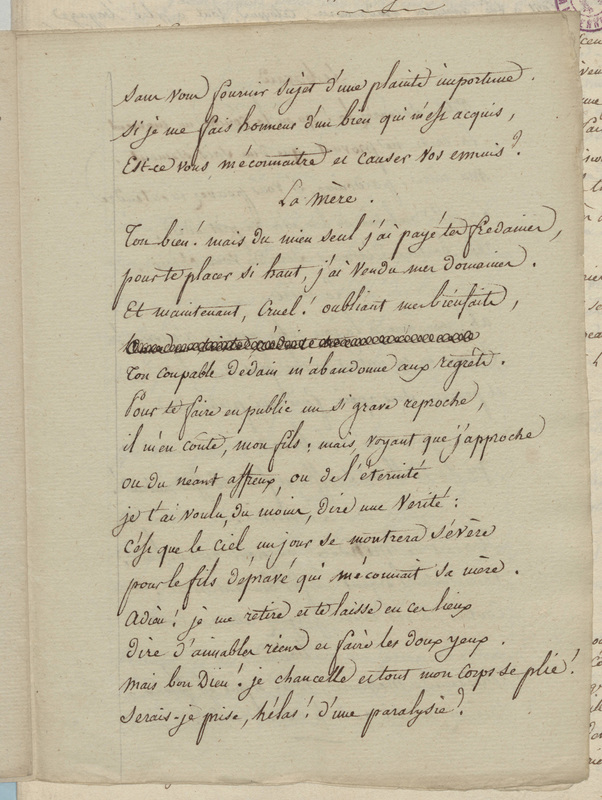 sans vous fournir sujet d'une plainte importune.
si je me fais honneur d'un bien qui m'est acquis,
Est-ce vous méconnaitre et causer vos ennuis ?
La mère.
Ton bien ! mais du mien seul j'ai payé tes fredaines,
pour te placer si haut, j'ai vendu mes domaines.
Et maintenant, Cruel ! oubliant mes bienfaits,
Ton coupable dédain m'abandonne aux regrêts.
Pour te faire en public un si grave reproche,
il m'en coute, mon fils ; mais, voyant que j'approche
ou du néant affreux, ou de l'éternité
je t'ai voulu, du moins, dire une Vérité :
C'est que le ciel un jour se montrera sévère
pour le fils dépravé qui méconnait sa mère.
Adieu ! je me retire et te laisse en ces lieux
dire d'aimables riens et faire les doux yeux.
mais bon Dieu ! je chancelle et tout mon corps se plie !
serais-je prise, hélas ! d'une paralysie ?